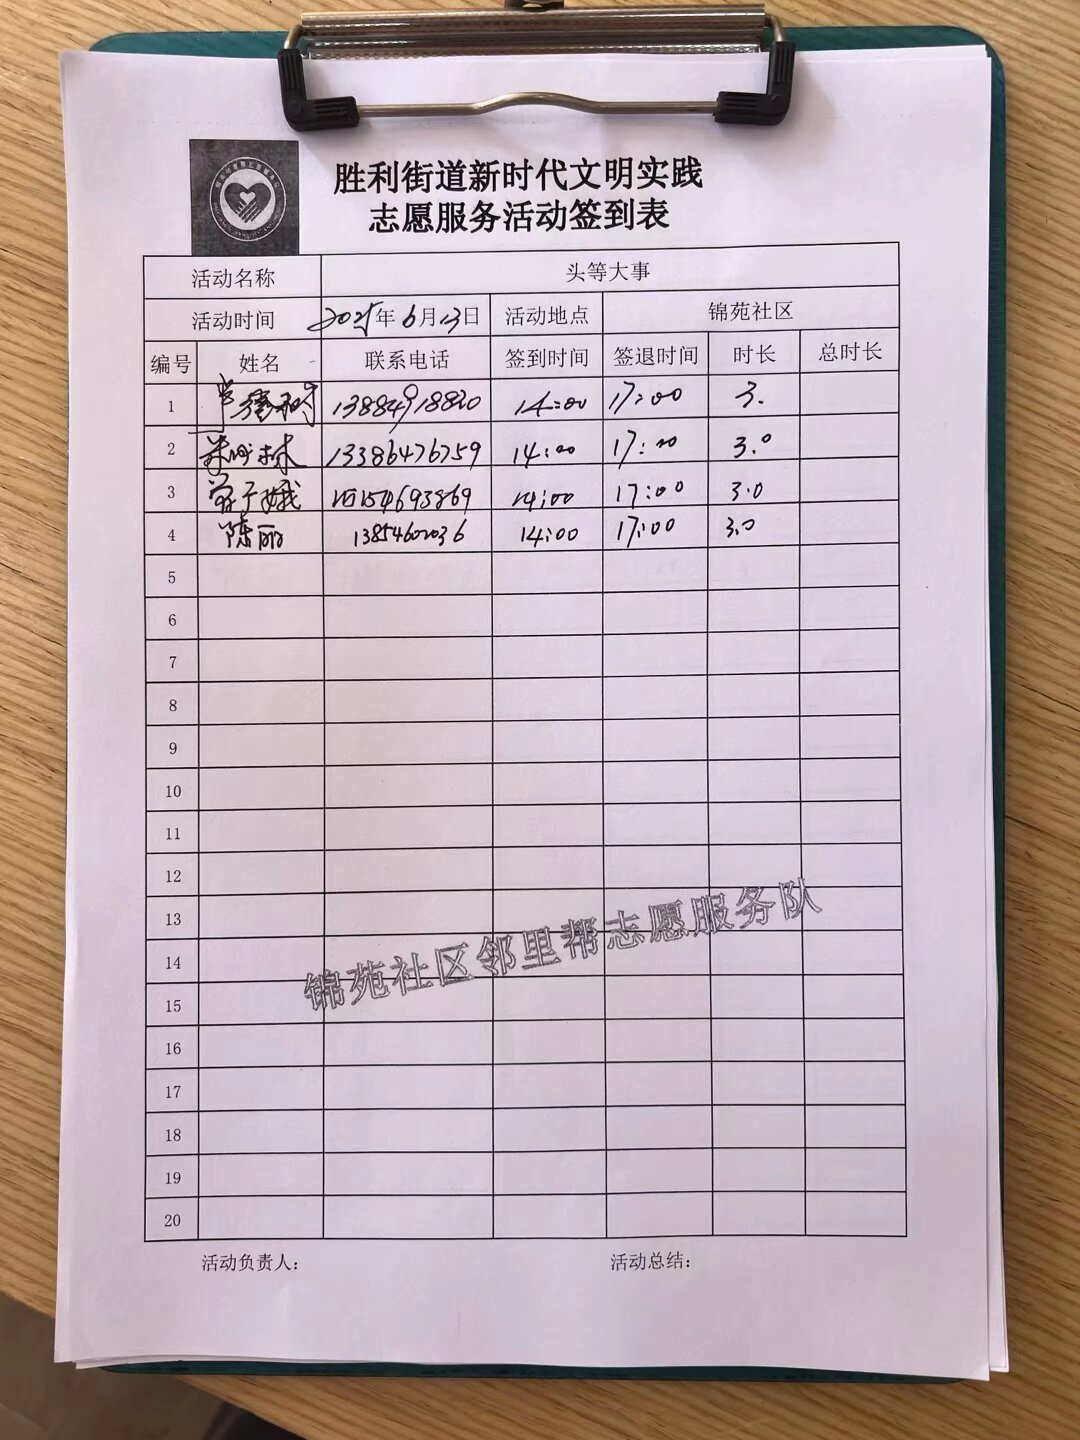 胜利街道新时代文明实践
志愿服务活动签到表
活动名称 头等大事
活动时间 2025年6月13日 活动地点 锦苑社区
编号 姓名 联系电话 签到时间 签退时间 时长 总时长
1 13884918820 14:00 17:00 3.
2 13386476759 14:00 17:00 3.0
3 15154693869 14:00 17:00 3.0
4 陈丽 14:00 17:00 3.0
5
6
7
8
9
10
11
12
13
14
15
16
17
18
19
20
锦苑社区邻里帮志愿服务队
活动负责人： 活动总结：